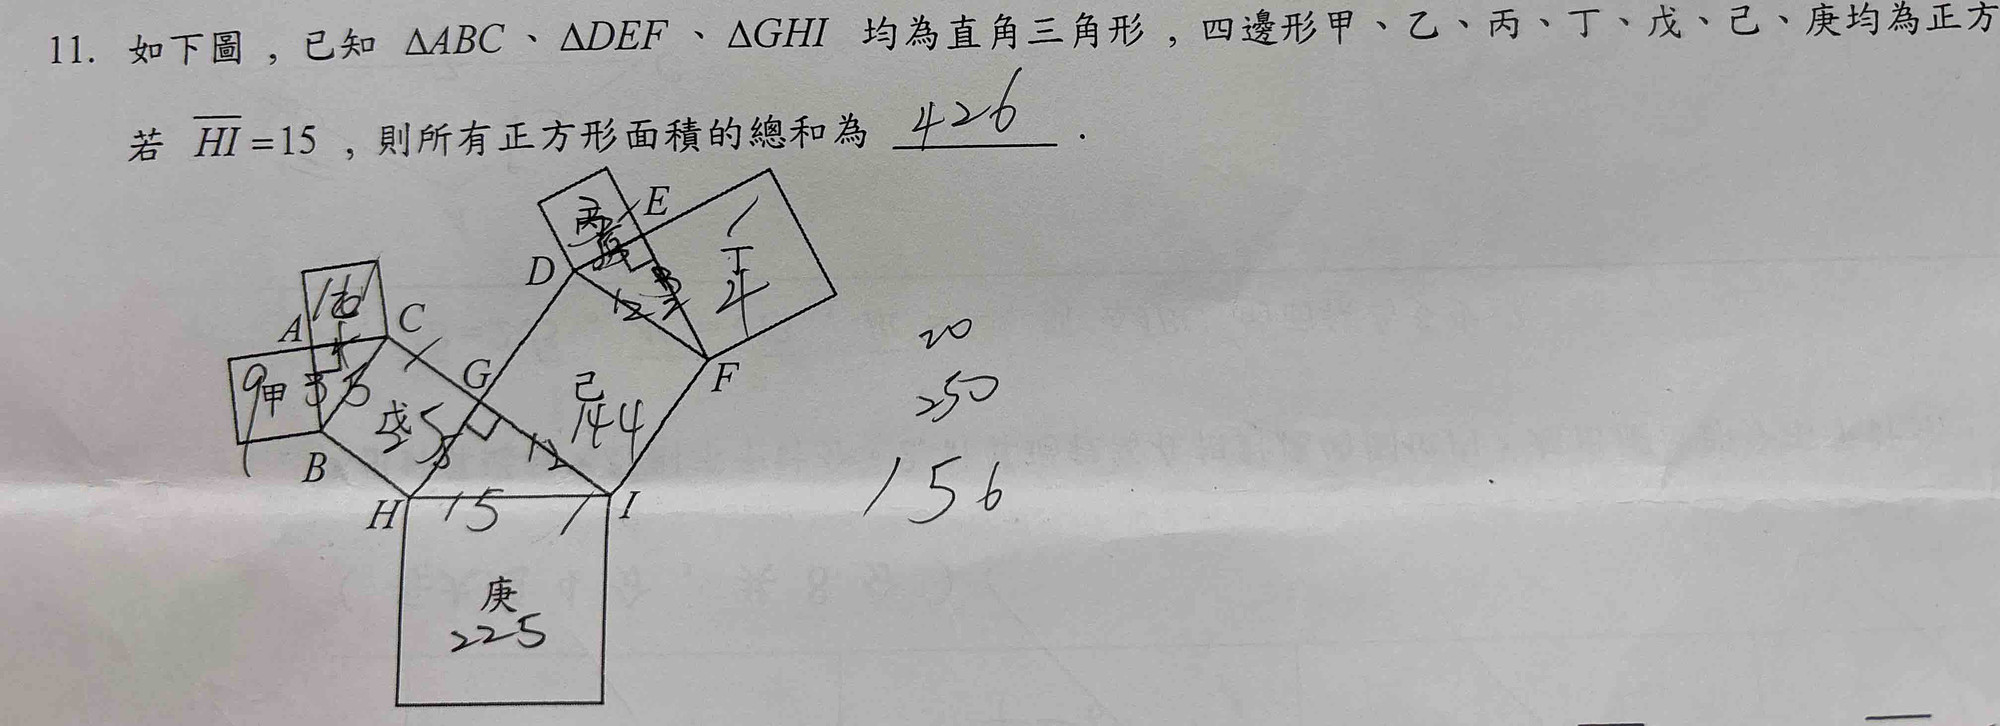 11. 如下圖，已知 ΔABC、ΔDEF、ΔGHI 均為直角三角形，四邊形甲、乙、丙、丁、戊、己、庚均為正方
若 HI=15，則所有正方形面積的總和為 426．
E
D
丙
丁
4
12
A
C
16
9甲
3
5
戊
G
己
144
F
20
250
156
B
5
12
H
15
I
庚
225